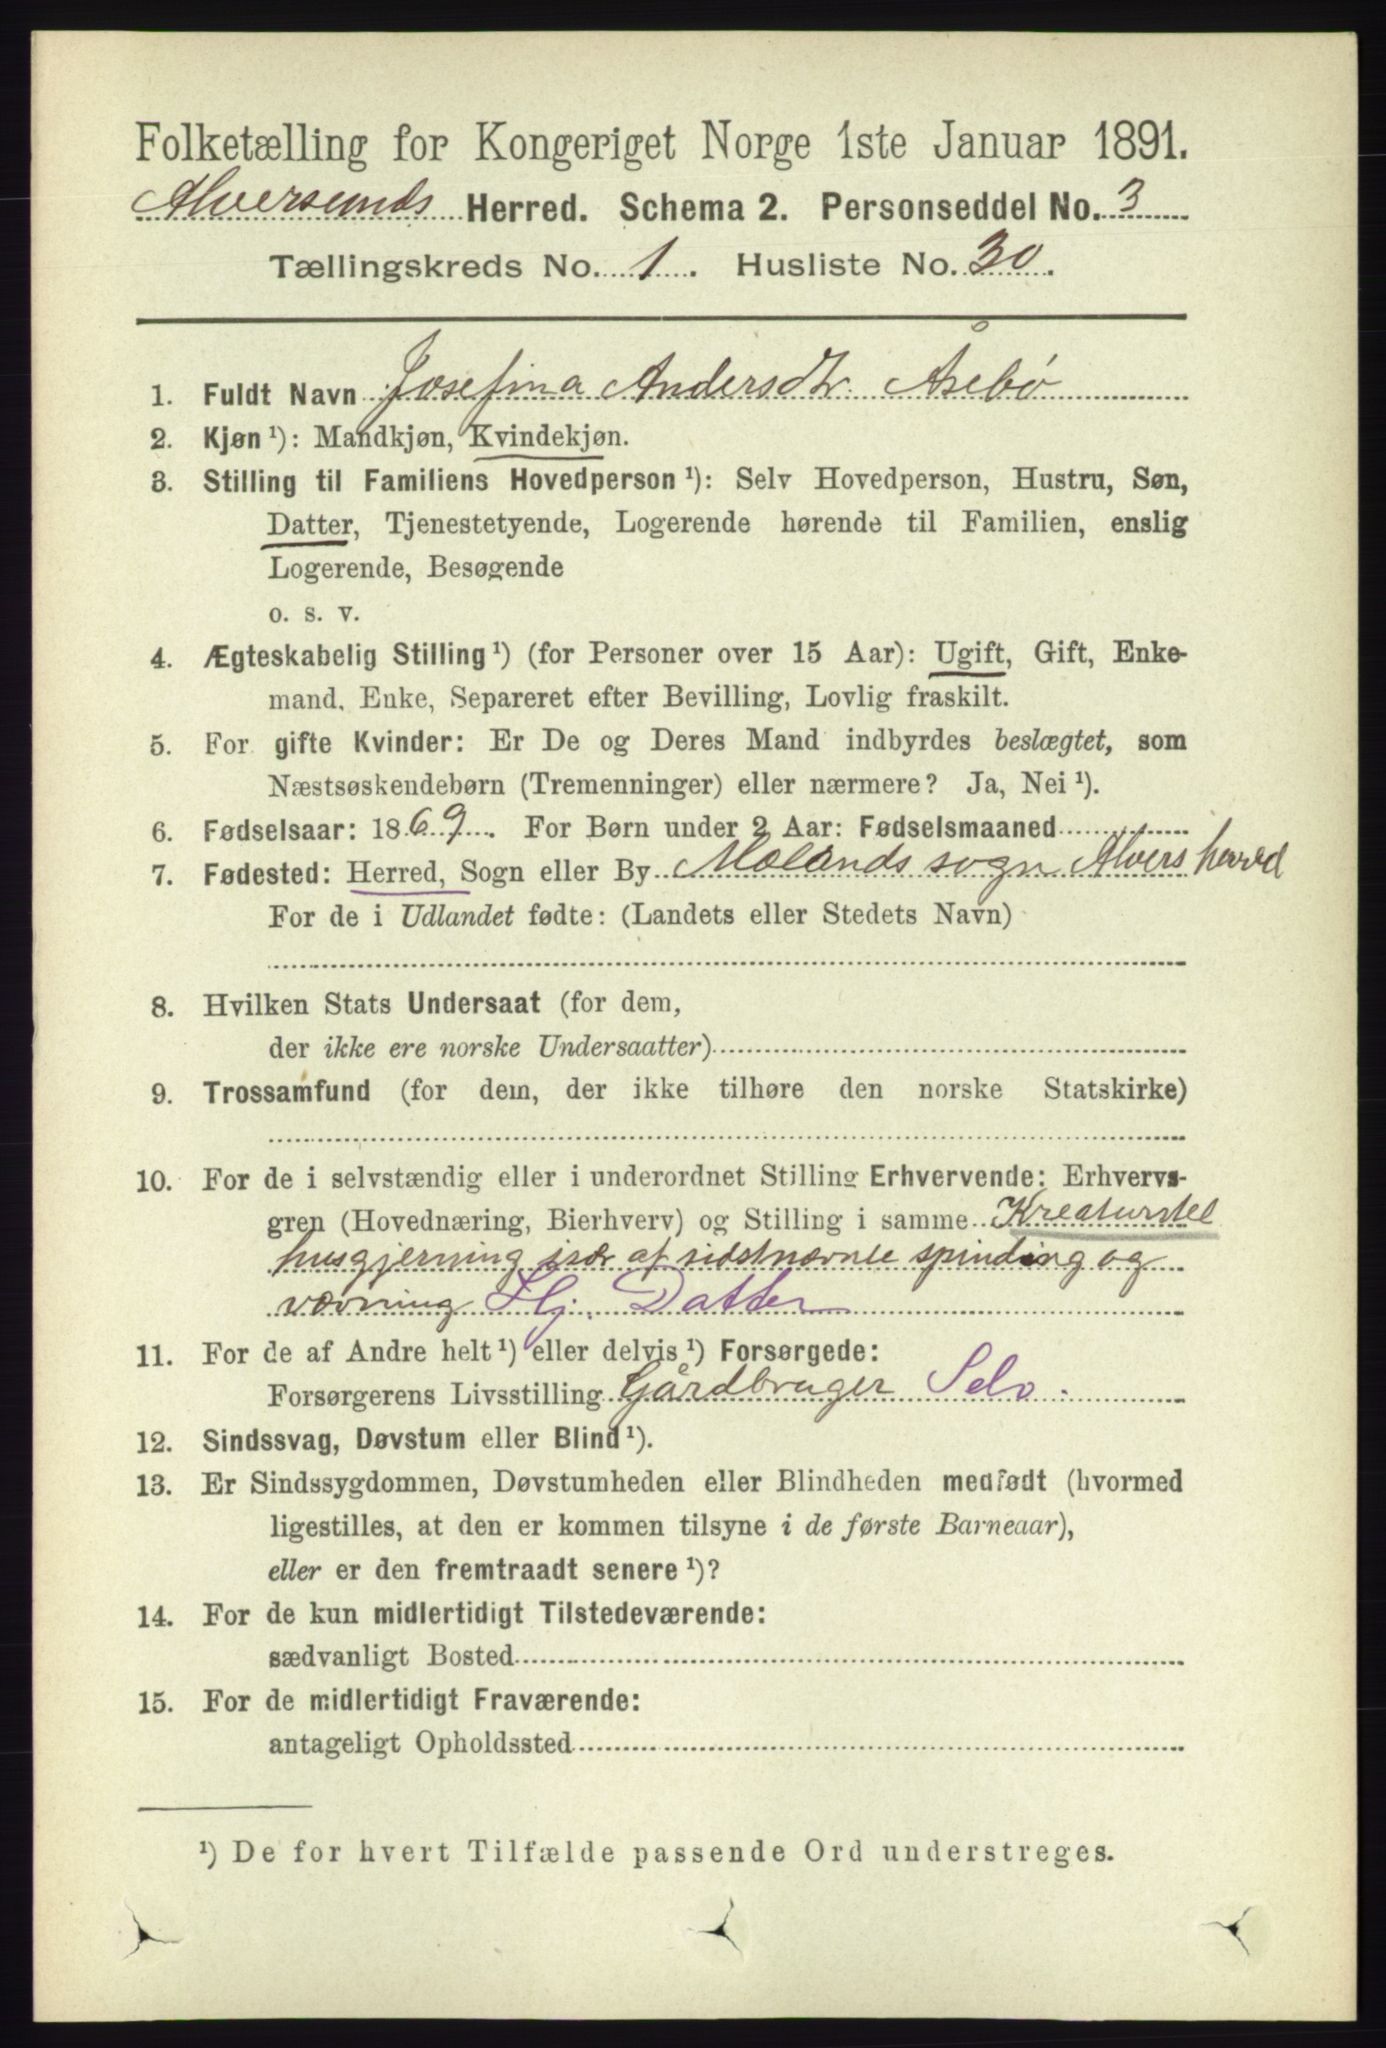 Folketælling for Kongeriget Norge 1ste Januar 1891.
Alversunds Herred. Schema 2. Personseddel No. 3
Tællingskreds No. 1. Husliste No. 30.
1. Fuldt Navn Josefina Andersdtr. Åsebø
2. Kjøn ¹): Mandkjøn, Kvindekjøn.
3. Stilling til Familiens Hovedperson ¹): Selv Hovedperson, Hustru, Søn,
Datter, Tjenestetyende, Logerende hørende til Familien, enslig
Logerende, Besøgende
o. s. v.
4. Ægteskabelig Stilling ¹) (for Personer over 15 Aar): Ugift, Gift, Enke-
mand, Enke, Separeret efter Bevilling, Lovlig fraskilt.
5. For gifte Kvinder: Er De og Deres Mand indbyrdes beslægtet, som
Næstsøskendebørn (Tremenninger) eller nærmere? Ja, Nei ¹).
6. Fødselsaar: 1869. For Børn under 2 Aar: Fødselsmaaned
7. Fødested: Herred, Sogn eller By Mælands sogn Alvers herred
For de i Udlandet fødte: (Landets eller Stedets Navn)
8. Hvilken Stats Undersaat (for dem,
der ikke ere norske Undersaatter)
9. Trossamfund (for dem, der ikke tilhøre den norske Statskirke)
10. For de i selvstændig eller i underordnet Stilling Erhvervende: Erhvervs-
gren (Hovednæring, Bierhverv) og Stilling i samme Kreaturstel
husgjerning især af sidstnævnte spinding og
vævning Hj. Datter
11. For de af Andre helt ¹) eller delvis ¹) Forsørgede:
Forsørgerens Livsstilling Gårdbruger Selv.
12. Sindssvag, Døvstum eller Blind ¹).
13. Er Sindssygdommen, Døvstumheden eller Blindheden medfødt (hvormed
ligestilles, at den er kommen tilsyne i de første Barneaar),
eller er den fremtraadt senere ¹)?
14. For de kun midlertidigt Tilstedeværende:
sædvanligt Bosted
15. For de midlertidigt Fraværende:
antageligt Opholdssted
¹) De for hvert Tilfælde passende Ord understreges.